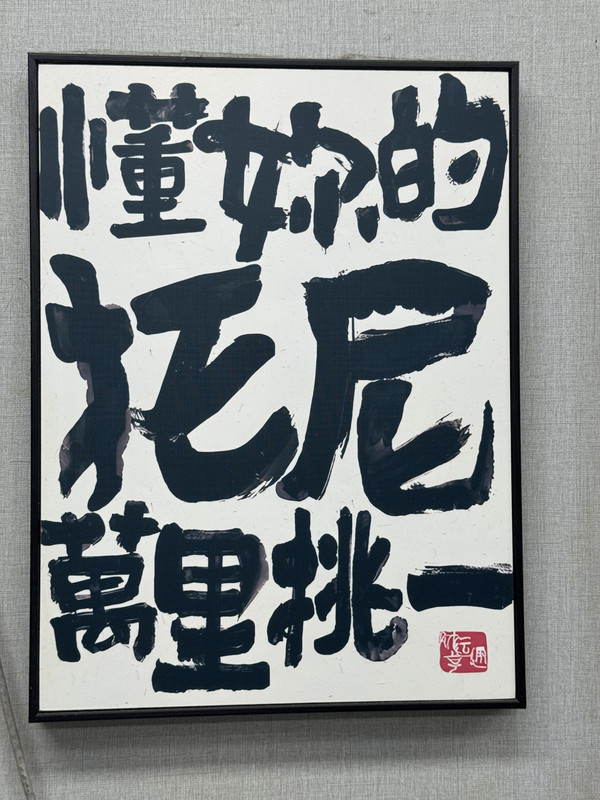 懂妳的
托尼
萬里挑一